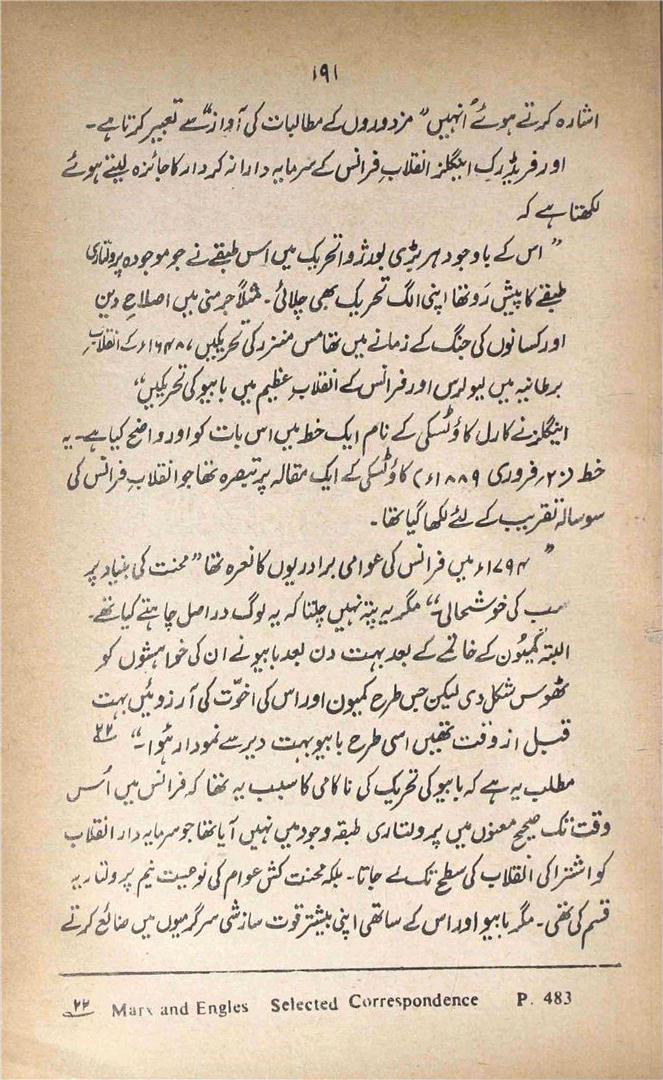 ۱۹۱
اشارہ کرتے ہوئے انہیں "مزدوروں کے مطالبات کی آواز" سے تعبیر کرتا ہے۔
اور فریڈرک اینگلز انقلابِ فرانس کے سرمایہ دارانہ کردار کا جائزہ لیتے ہوئے
لکھتا ہے کہ
"اس کے باوجود ہر بڑی بورژوا تحریک میں اُس طبقے نے جو موجودہ پرولتاری
طبقے کا پیش رَو تھا اپنی الگ تحریک بھی چلائی۔ مثلاً جرمنی میں اصلاحِ دین
اور کسانوں کی جنگ کے زمانے میں تھامس منزر کی تحریکیں ۱۶۴۸ء کے انقلابِ
برطانیہ میں لیولرس اور فرانس کے انقلابِ عظیم میں بابیو کی تحریکیں"
اینگلز نے کارل کاؤٹسکی کے نام ایک خط میں اس بات کو اور واضح کیا ہے۔ یہ
خط (۲۰؍فروری ۱۸۸۹ء) کاؤٹسکی کے ایک مقالہ پر تبصرہ تھا جو انقلابِ فرانس کی
سو سالہ تقریب کے لئے لکھا گیا تھا۔
"۱۷۹۴ء میں فرانس کی عوامی برادریوں کا نعرہ تھا "محنت کی بنیاد پر
سب کی خوشحالی۔" مگر یہ پتہ نہیں چلتا کہ یہ لوگ دراصل چاہتے کیا تھے۔
البتہ کمیُون کے خاتمے کے بعد بہت دن بعد بابیو نے ان کی خواہشوں کو
ٹھوس شکل دی لیکن جس طرح کمیون اور اس کی اخوّت کی آرزوئیں بہت
قبل از وقت تھیں اسی طرح بابیو بہت دیر سے نمودار ہُوا۔" ۲۲
مطلب یہ ہے کہ بابیو کی تحریک کی ناکامی کا سبب یہ تھا کہ فرانس میں اُس
وقت تک صحیح معنوں میں پرولتاری طبقہ وجود میں نہیں آیا تھا جو سرمایہ دار انقلاب
کو اشتراکی انقلاب کی سطح تک لے جاتا۔ بلکہ محنت کش عوام کی نوعیت نیم پرولتاریہ
قسم کی تھی۔ مگر بابیو اور اس کے ساتھی اپنی بیشتر قوت سازشی سرگرمیوں میں ضائع کرتے
۲۲ Marx and Engles Selected Correspondence P. 483